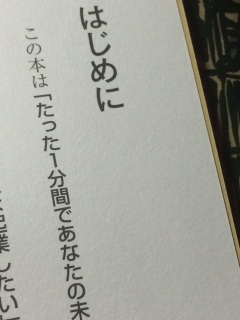 はじめに
この本は「たった1分間であなたの未
起業したい